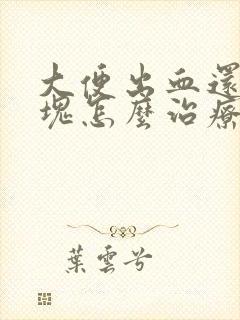 大便出血還
塊怎麼治療
葉雲兮